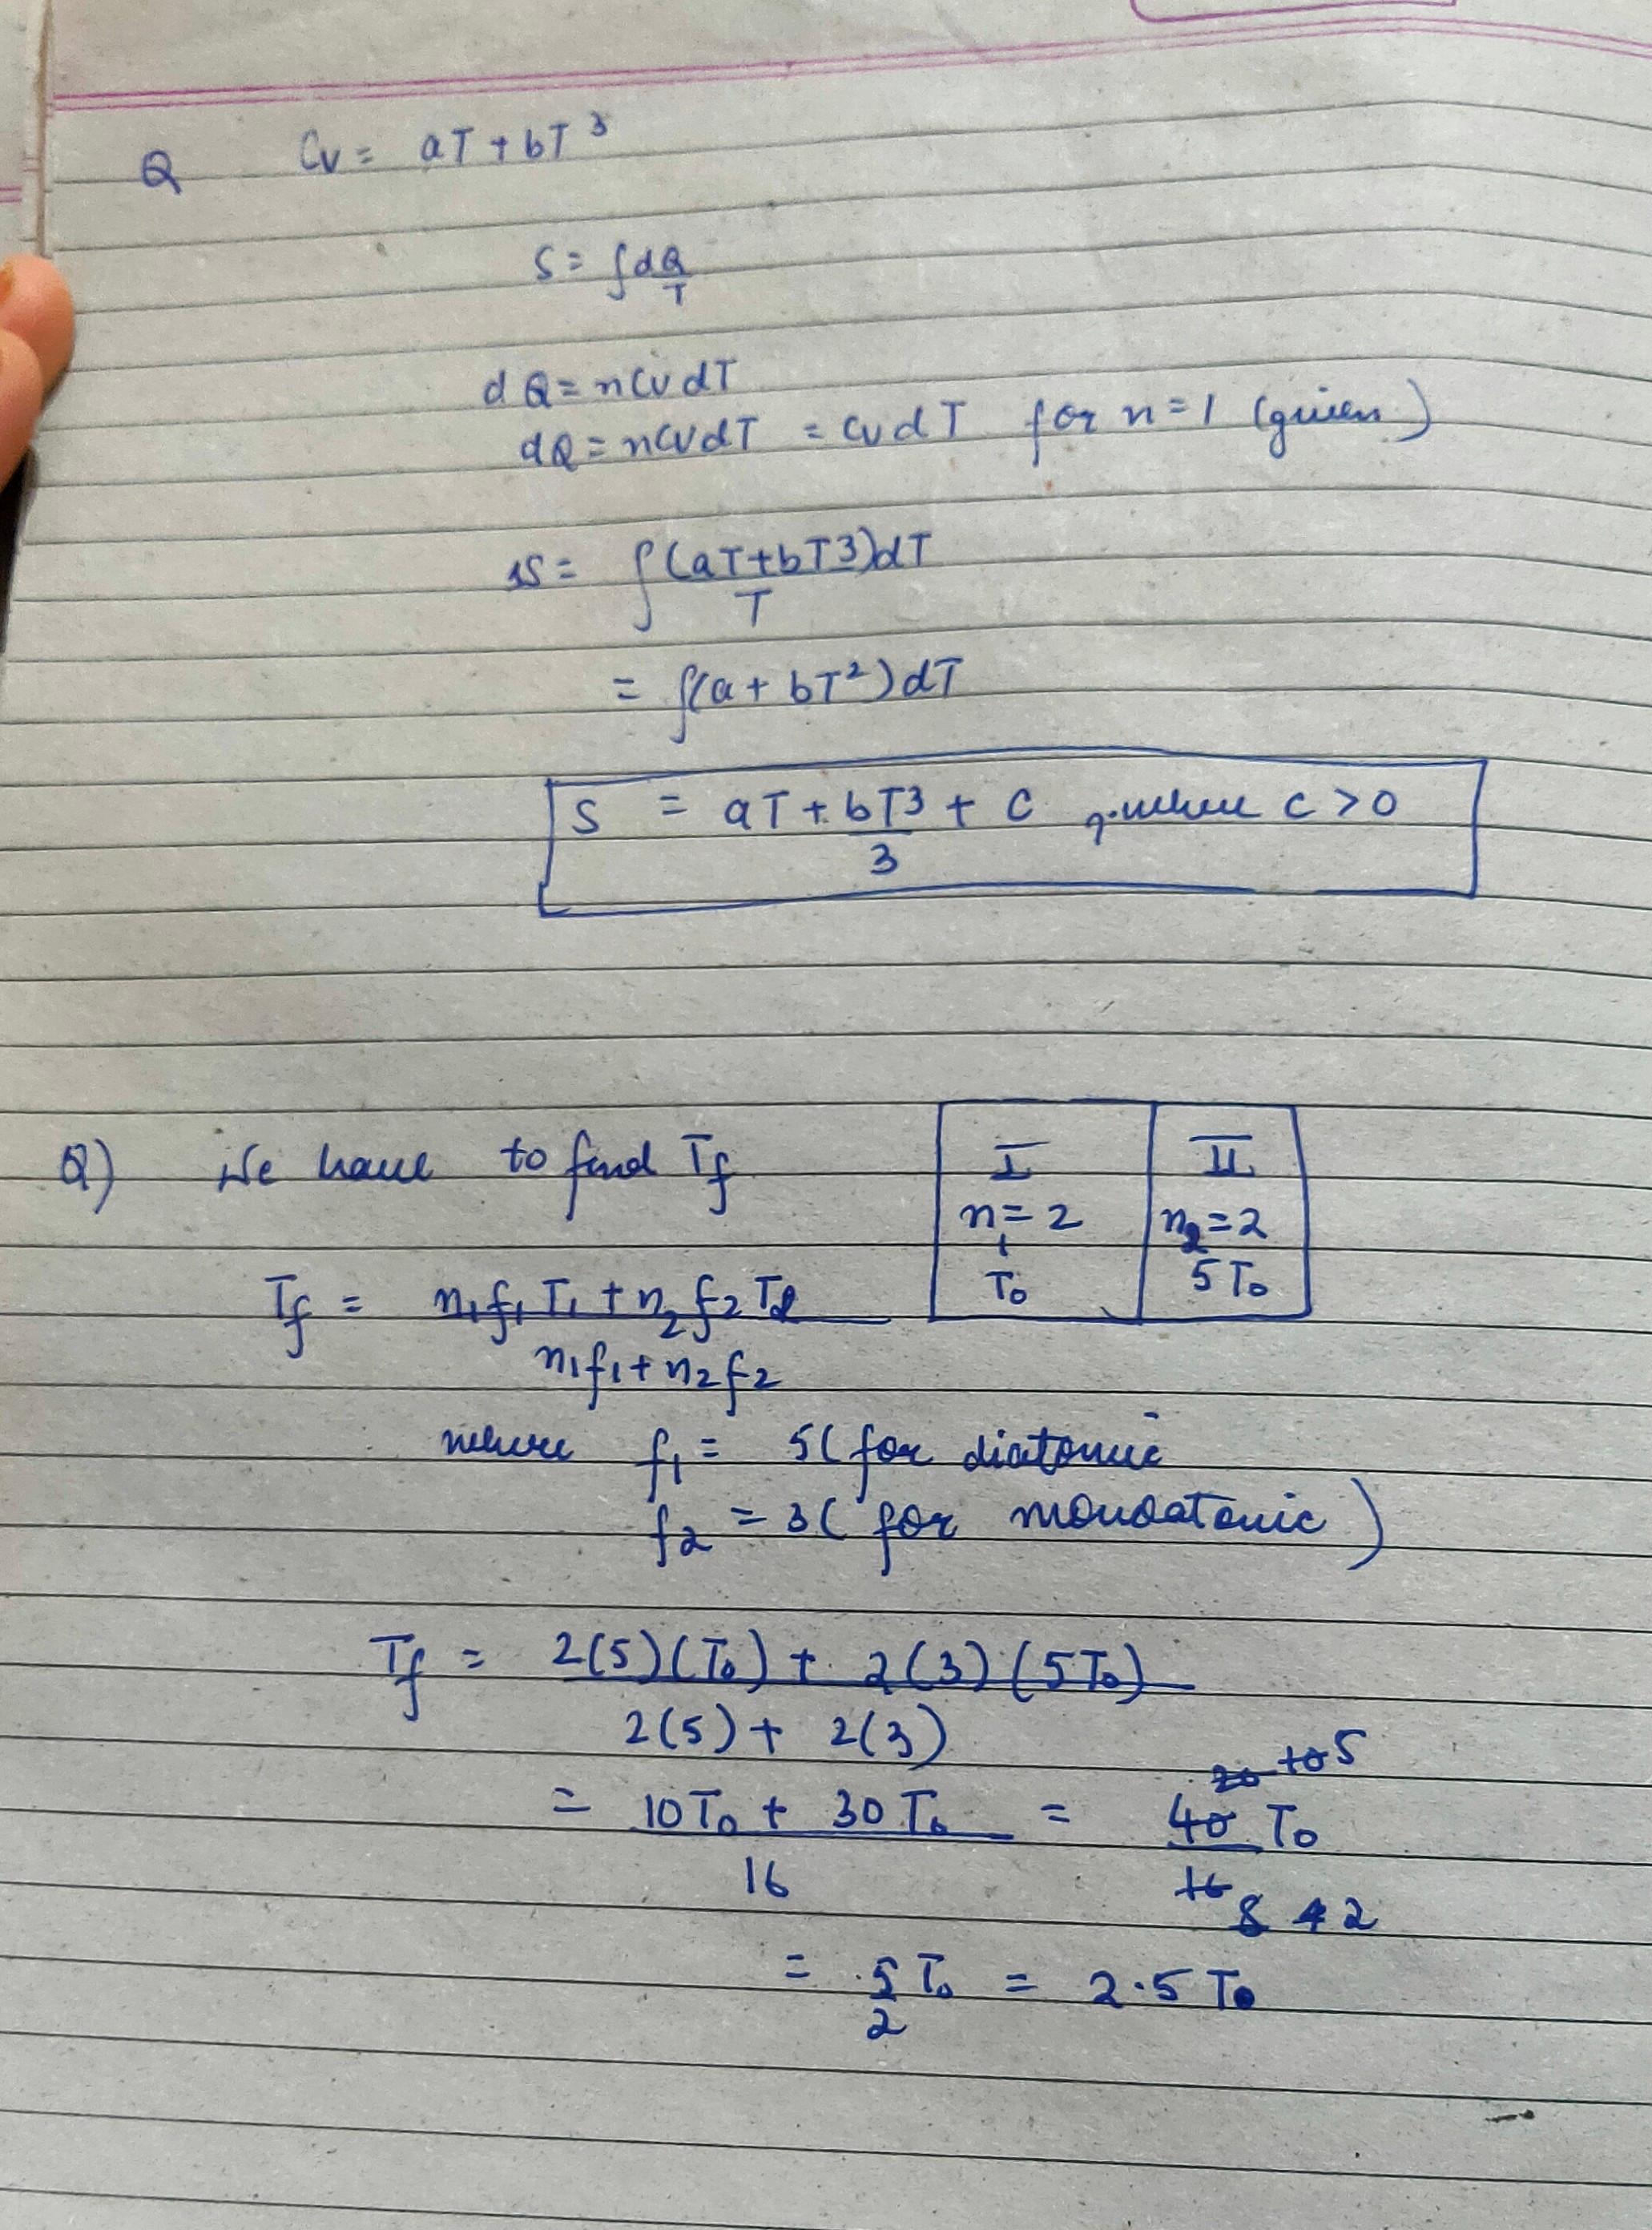 Q Cv = aT + bT³
S = ∫dQ/T
dQ = nCvdT
dQ = nCvdT = CvdT for n=1 (given)
S = ∫(aT+bT3)dT/T
= ∫(a + bT²)dT
S = aT + bT3/3 + C , where C > 0
Q) We have to find Tf
I II
n₁ = 2 n₂ = 2
T₀ 5T₀
Tf = n₁f₁T₁ + n₂f₂T₂
n₁f₁ + n₂f₂
where f₁ = 5( for diatomic
f₂ = 3( for monoatomic )
Tf = 2(5)(T₀) + 2(3)(5T₀)
2(5) + 2(3)
20 10 5
= 10T₀ + 30T₀ = 40 T₀
16 16
8 4 2
= 5/2 T₀ = 2.5 T₀